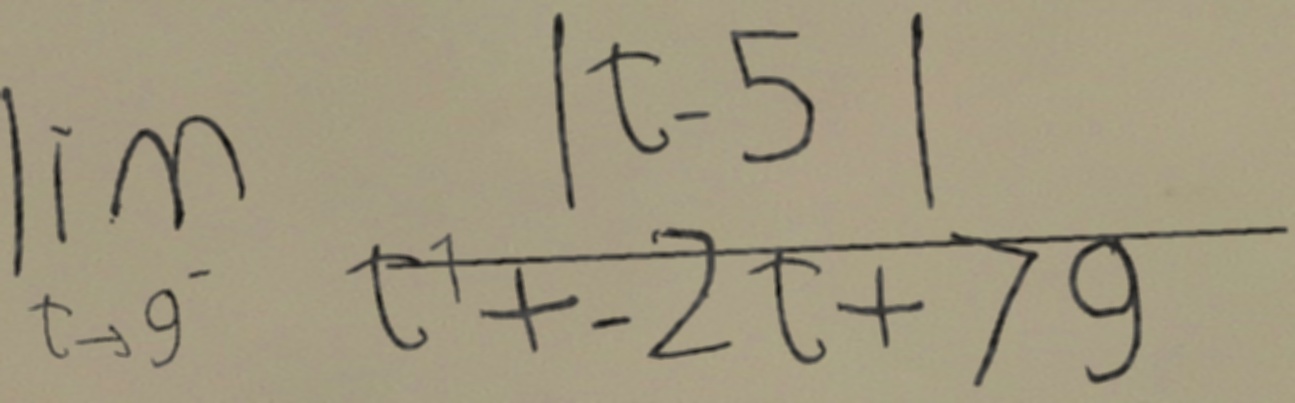 \lim_{t \to 9^-} \frac{|t-5|}{t^1+-2t+79}